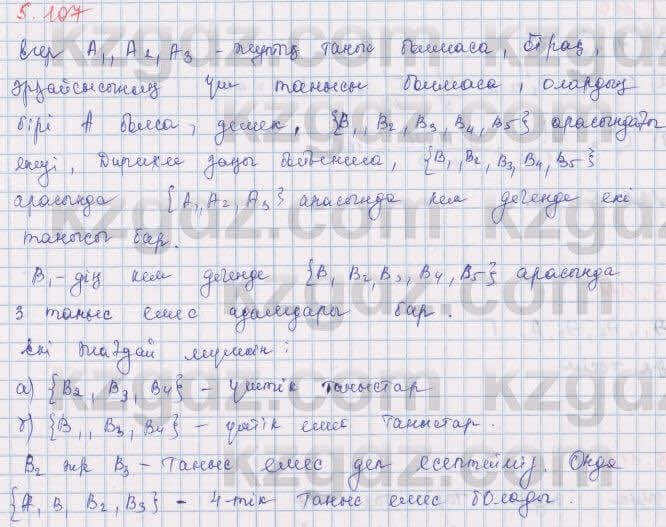 5.107
егер A₁, A₂, A₃ - жұптық таныс болмаса, бірақ,
әрқайсысының үш танысы болмаса, олардың
бірі A болса, демек, {B₁, B₂, B₃, B₄, B₅} арасындағы
екеуі, Дирихле заңы бойынша, {B₁, B₂, B₃, B₄, B₅}
арасында {A₁, A₂, A₃} арасында кем дегенде екі
танысы бар.
B₁-дің кем дегенде {B₁, B₂, B₃, B₄, B₅} арасында
3 таныс емес адамдары бар.
екі жағдай мүмкін:
а) {B₂, B₃, B₄} - үштік таныстар
б) {B₁, B₃, B₄} - үштік емес таныстар.
B₂ және B₃ - таныс емес деп есептейміз. Онда
{A, B, B₂, B₃} - 4-тік таныс емес болады.
kzgdz.com